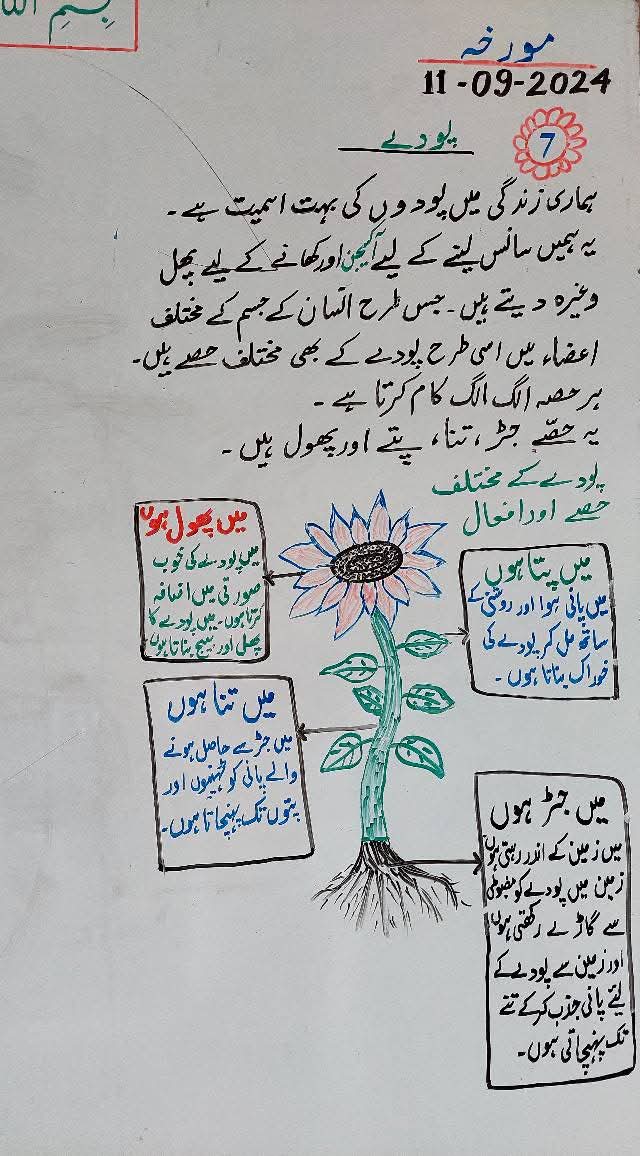 بِسْمِ اللہ
مورخہ
11-09-2024
7
پودے
ہماری زندگی میں پودوں کی بہت اہمیت ہے۔
یہ ہمیں سانس لینے کے لیے آکسیجن اور کھانے کے لیے پھل
وغیرہ دیتے ہیں۔ جس طرح انسان کے جسم کے مختلف
اعضاء ہیں اسی طرح پودے کے بھی مختلف حصے ہیں۔
ہر حصہ الگ الگ کام کرتا ہے۔
یہ حصّے جڑ، تنا، پتے اور پھول ہیں۔
پودے کے مختلف
حصے اور افعال
میں پھول ہوں
میں پودے کی خوب
صورتی میں اضافہ
کرتا ہوں۔ میں پودے کا
پھل اور بیج بناتا ہوں
میں پتا ہوں
میں پانی ہوا اور روشنی کے
ساتھ مل کر پودے کی
خوراک بناتا ہوں۔
میں تنا ہوں
میں جڑ سے حاصل ہونے
والے پانی کو ٹہنیوں اور
پتوں تک پہنچاتا ہوں۔
میں جڑ ہوں
میں زمین کے اندر رہتی ہوں
زمین میں پودے کو مضبوطی
سے گاڑے رکھتی ہوں
اور زمین سے پودے کے
لئے پانی جذب کر کے تنے
تک پہنچاتی ہوں۔